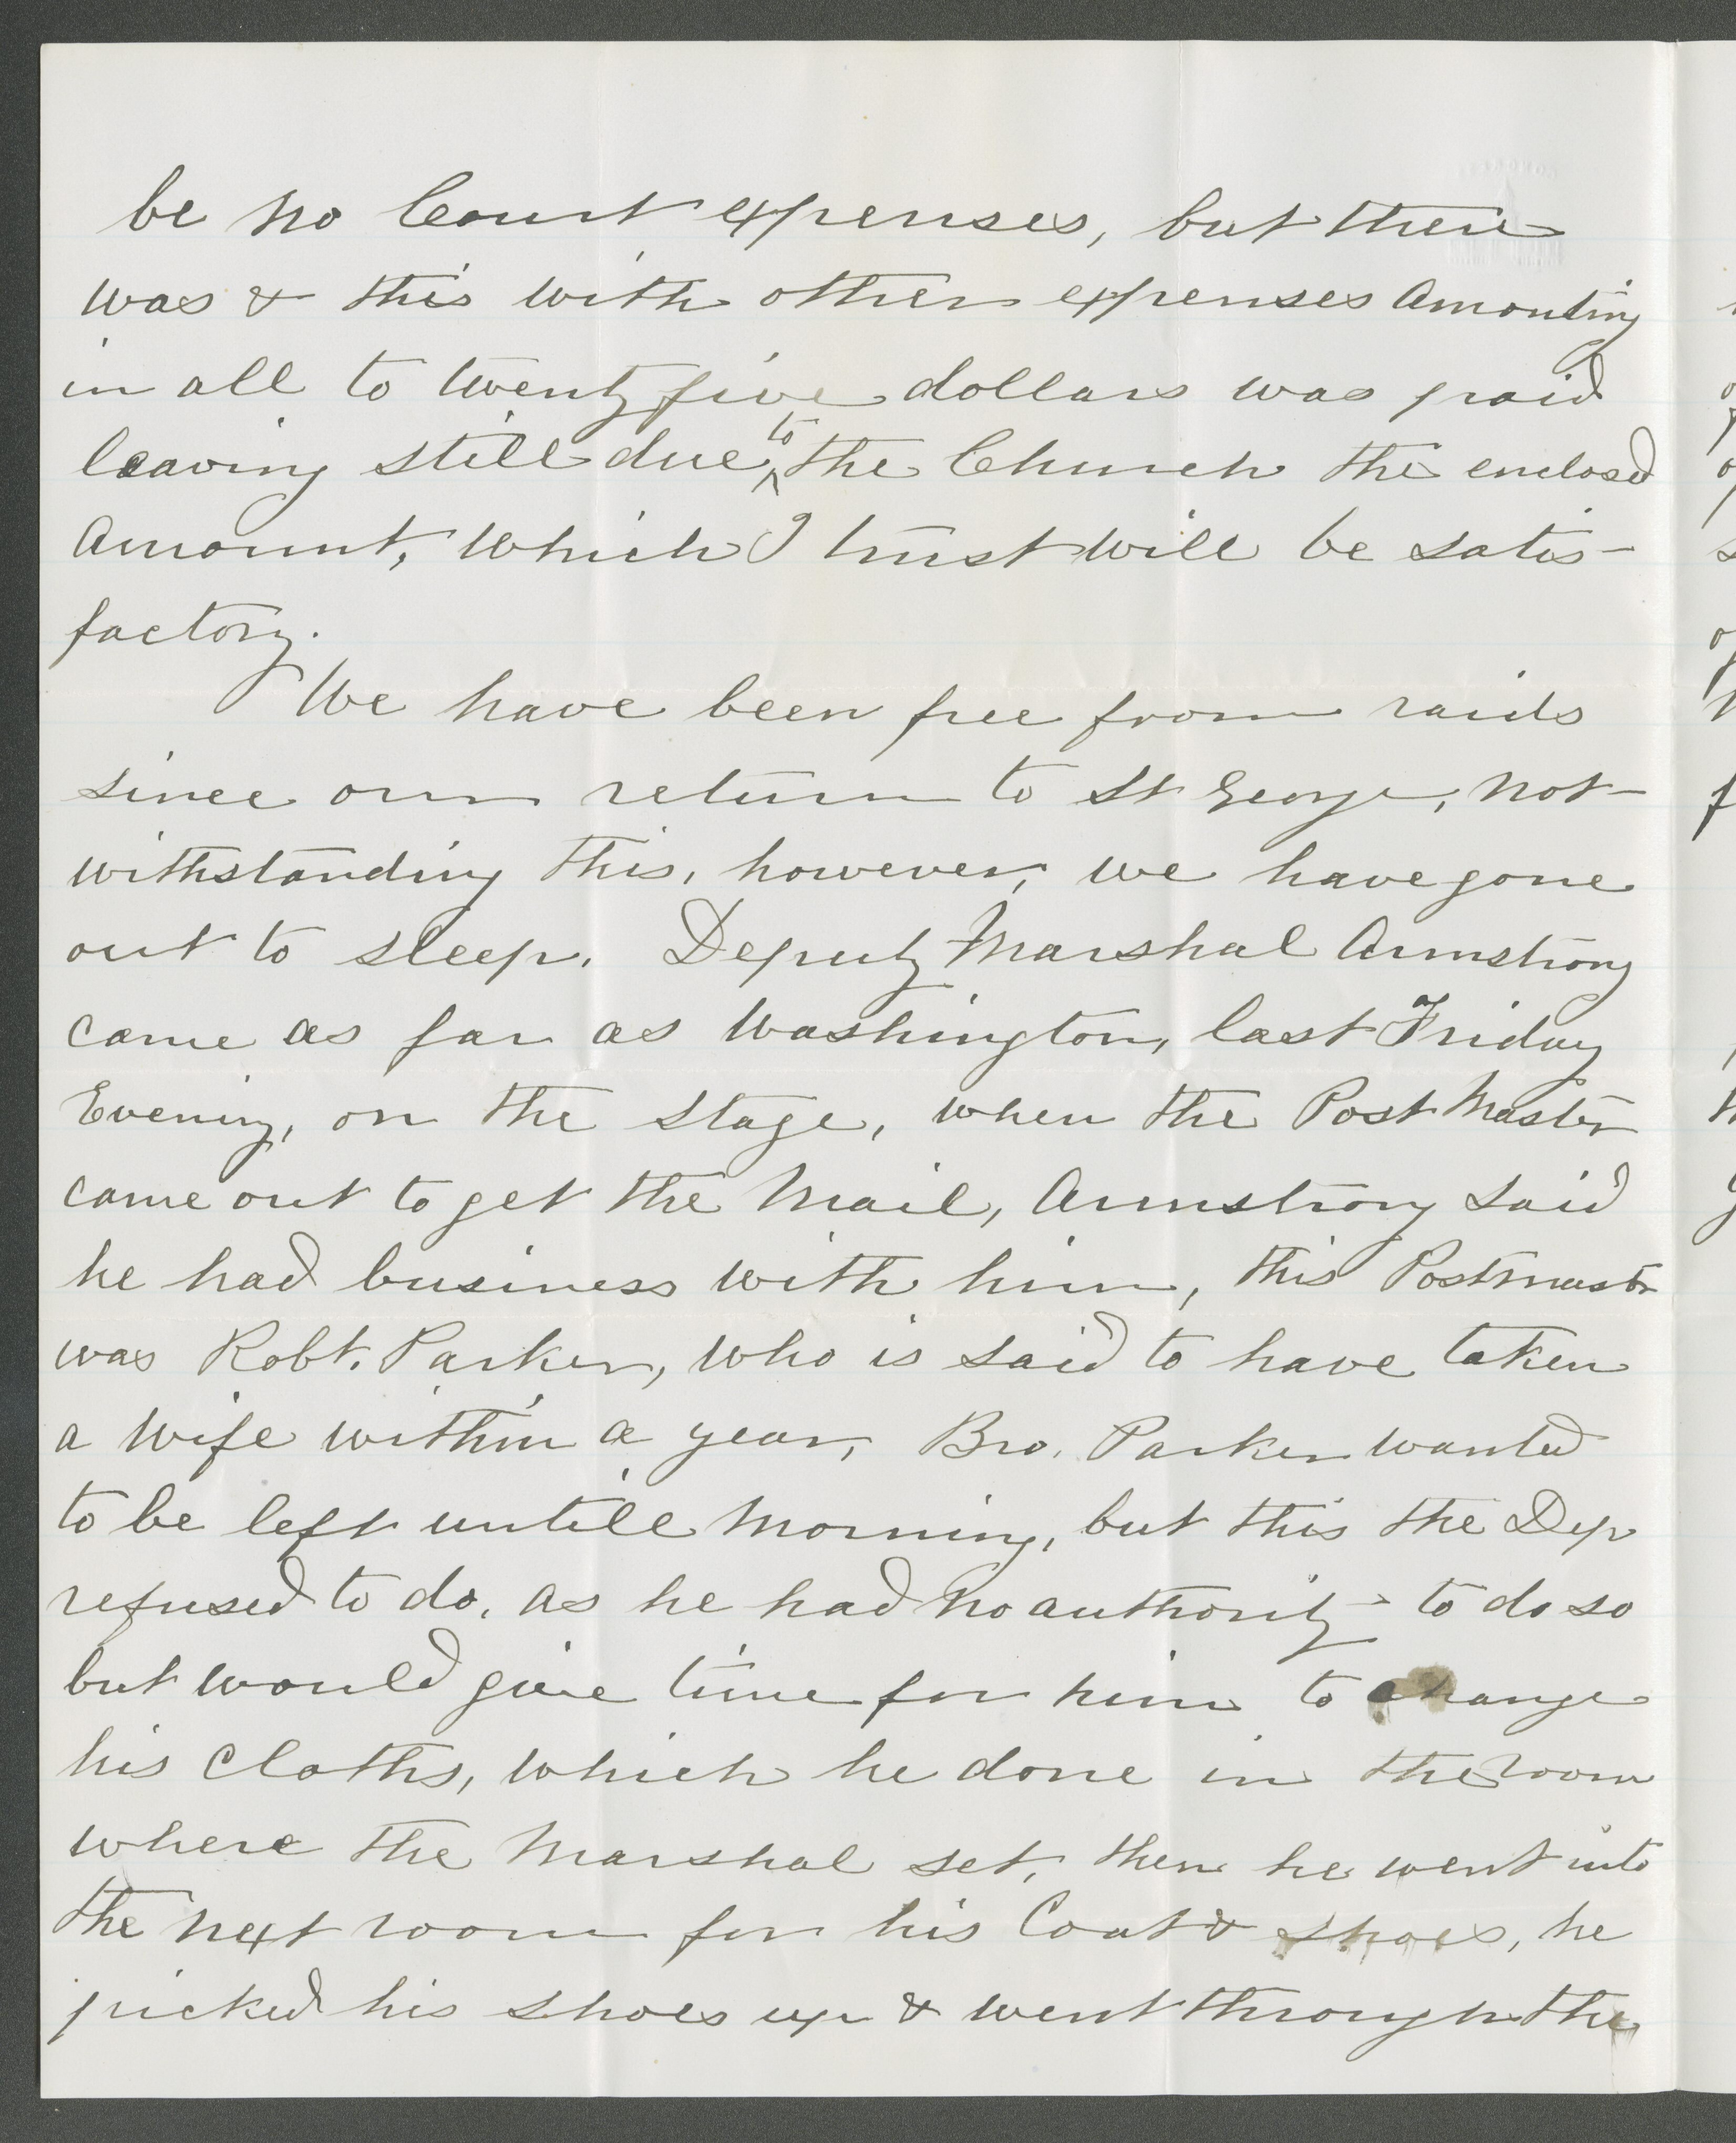 be no Court expenses, but there
was & this with other expenses Amouting
in all to twenty five dollars was paid
leaving still due to the Church the enclosed
Amount, which I trust will be satis-
factory.
We have been free from raids
since our return to St George, not-
withstanding this, however, we have gone
out to sleep. Deputy Marshal Armstrong
came as far as Washington, last Friday
Evening, on the Stage, when the Post Master
came out to get the Mail, Armstrong said
he had business with him, this Postmastr
was Robt. Parker, who is said to have taken
a wife within a year, Bro. Parker wanted
to be left untill Morning, but this the Dep
refused to do, as he had no authority to do so
but would give time for him to change
his Cloths, which he done in the room
where the Marshal set, then he went into
the next room for his Coat & shoes, he
picked his shoes up & went through the